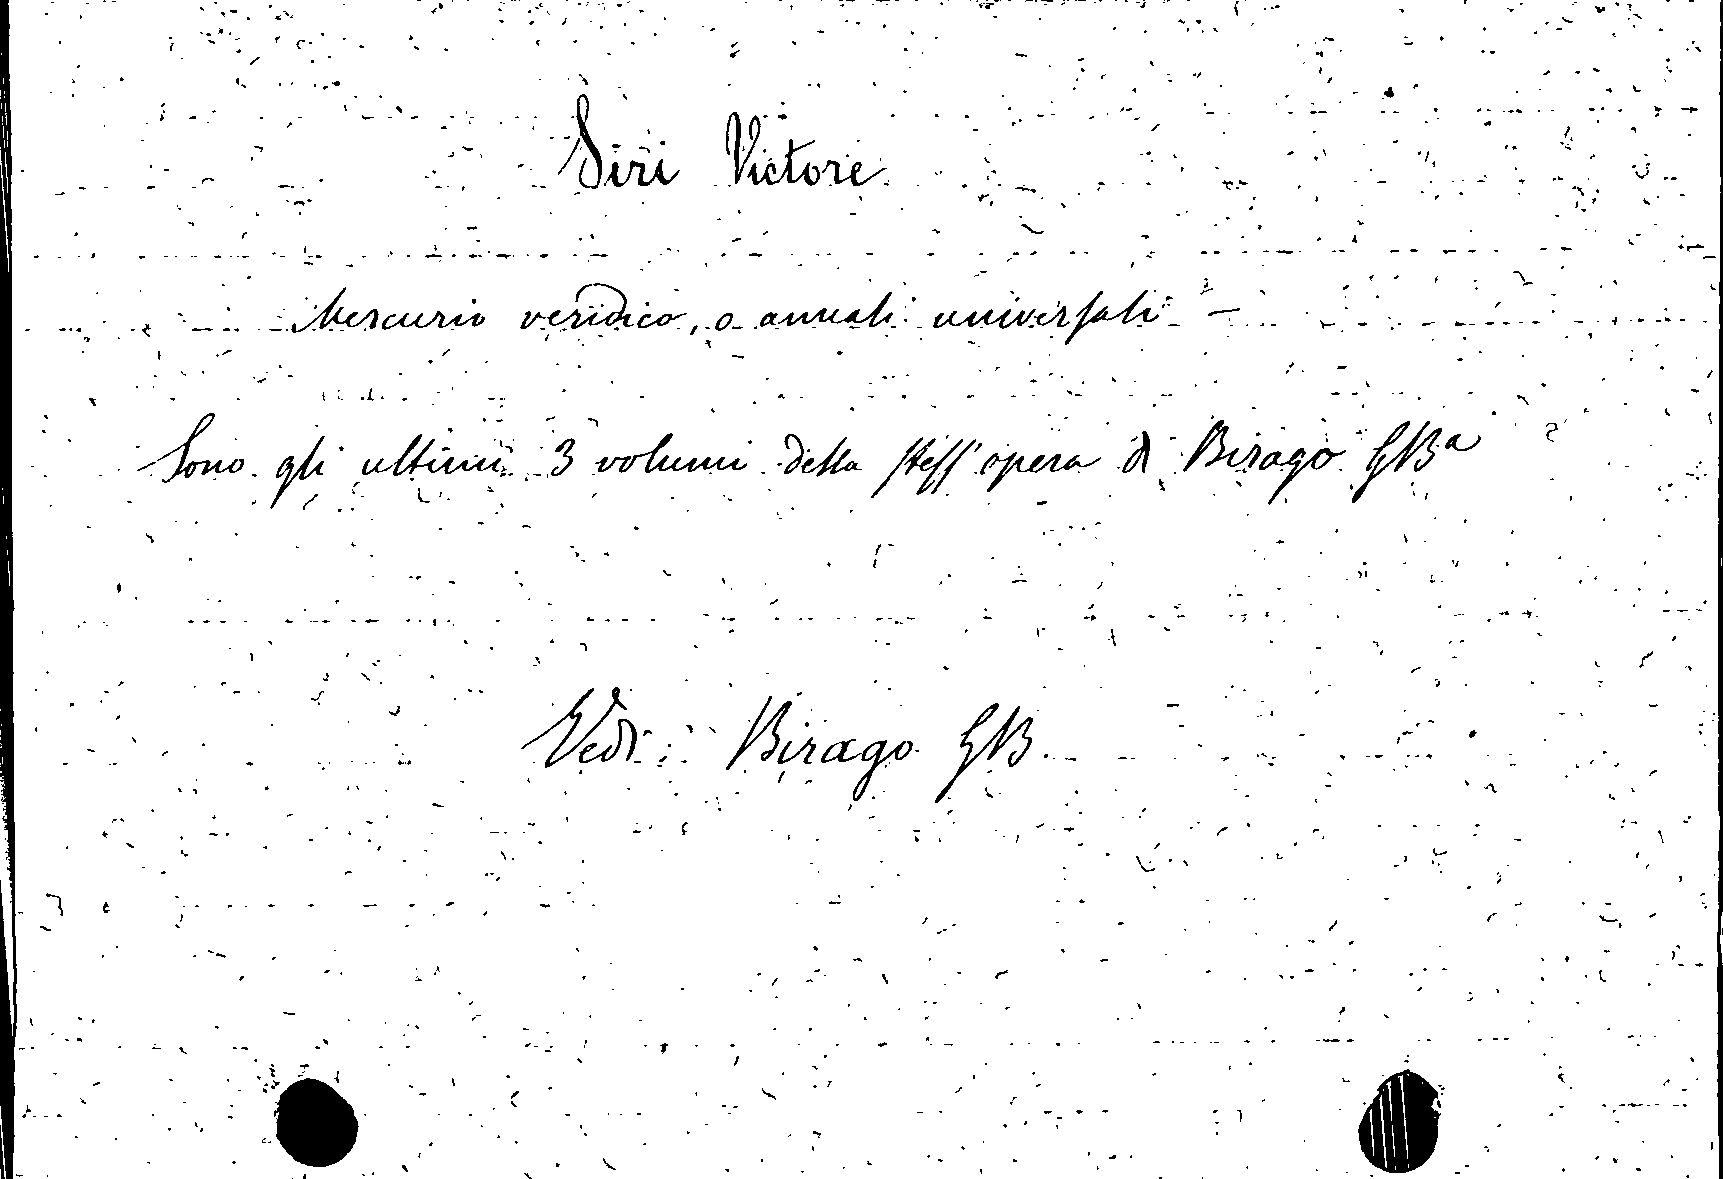 Siri Victore
Mercurio veridico, o annali universali –
Sono gli ultimi 3 volumi della stess' opera di Birago GBa
Vedi: Birago GB.